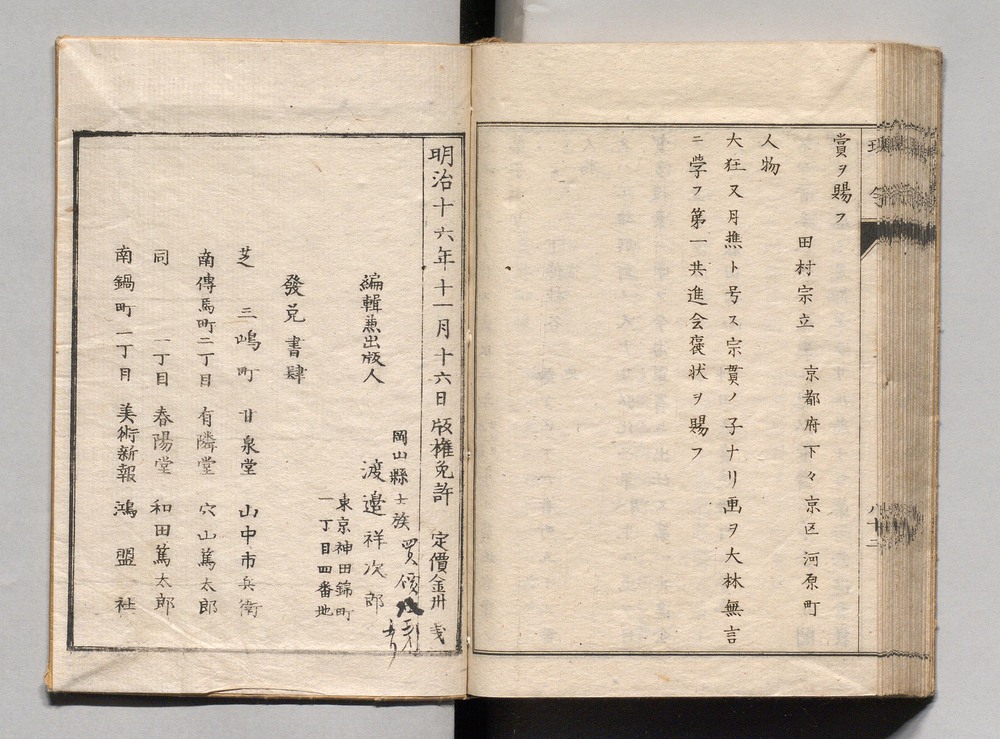 賞ヲ賜フ
田村宗立 京都府下々京区河原町
人物
大狂又月樵ト号ス宗貫ノ子ナリ画ヲ大林無言
ニ学フ第一共進会褒状ヲ賜フ
明治十六年十一月十六日版権免許 定價金卅戔
岡山縣士族
編輯兼出版人 渡邉祥次郎
東京神田錦町
一丁目四番地
發兌書肆
芝 三嶋町 甘泉堂 山中市兵衛
南傳馬町二丁目 有隣堂 穴山篤太郎
同 一丁目 春陽堂 和田篤太郎
南鍋町一丁目 美術新報 鴻盟社